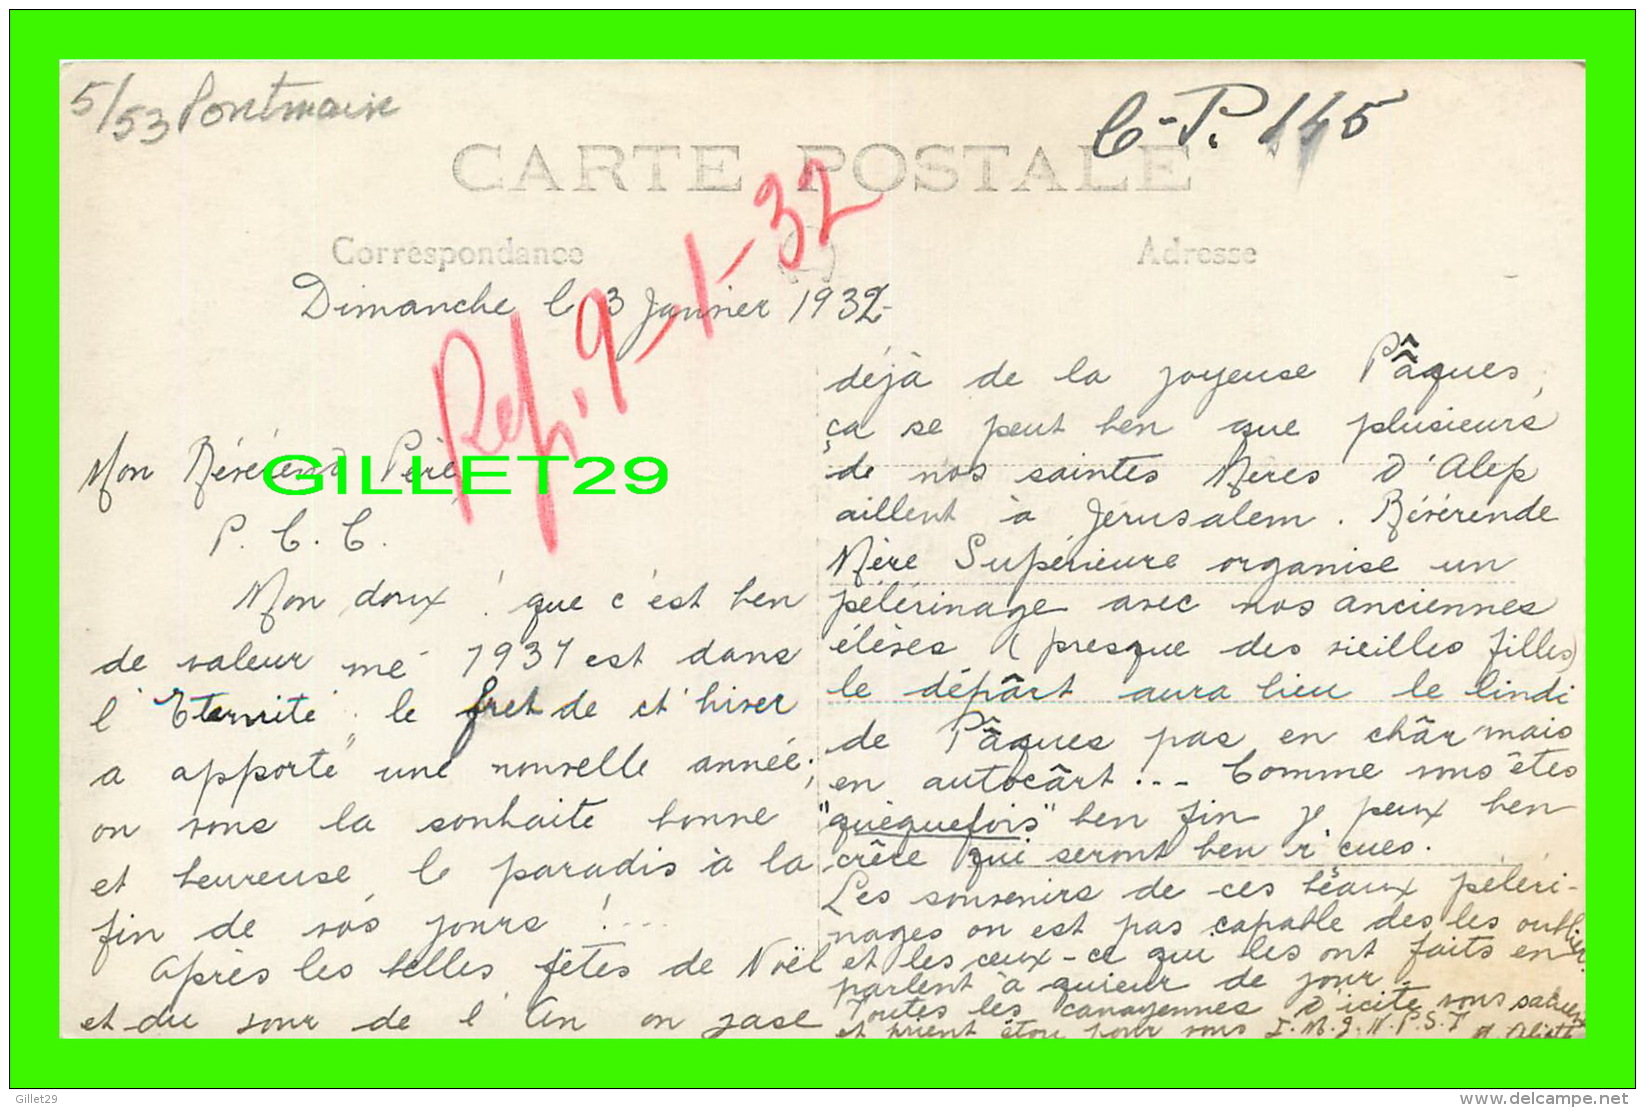 5/53 Pontmain
C-P. 145
CARTE POSTALE
Correspondance
Adresse
Ref. 9-1-32
Dimanche le 3 Janvier 1932-
Mon Révérend Père
GILLET29
P. C. C.
Mon doux ! que c'est ben
de valeur mé 1931 est dans
l'Eternité ; le fret de ct'hiver
a apporté une nouvelle année;
on vous la souhaite bonne
et heureuse, le paradis à la
fin de vos jours !...
Après les belles fêtes de Noël
et du jour de l'An on jase
déjà de la joyeuse Pâques,
ça se peut ben que plusieurs
de nos saintes Mères d'Alep
aillent à Jérusalem. Révérende
Mère Supérieure organise un
pélérinage avec nos anciennes
élèves (presque des vieilles filles)
le dépârt aura lieu le lindi
de Pâques pas en châr mais
en autocârt... Comme vous êtes
"quèquefois" ben fin je peux ben
crêre qui seront ben r'cues.
Les souvenirs de ces bèaux péléri-
nages on est pas capable des les oublier
et les ceux-ce que les ont faits en
parlent à quieur de jour.
Toutes les canayennes d'icite vous saluent
et prient étou pour vous J. M. J. N. P. S. T
Gillet29
www.delcampe.net